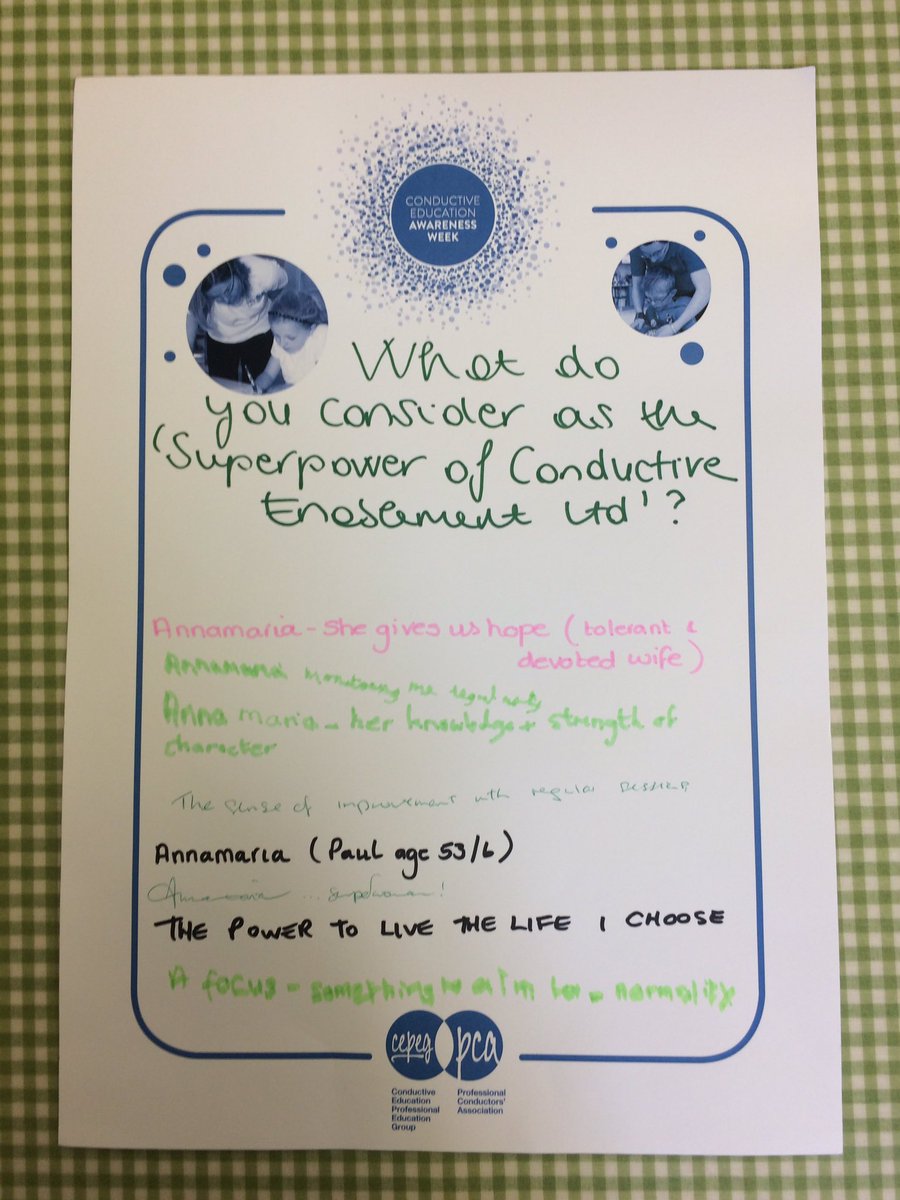 CONDUCTIVE
EDUCATION
AWARENESS
WEEK
What do
you consider as the
'Superpower of Conductive
Enablement Ltd'?
Annamaria - she gives us hope (tolerant &
devoted wife)
Annamaria monitoring me regularly
Anna maria - her knowledge + strength of
character
The sense of improvement with regular sessions
Annamaria (Paul age 53/6)
Annamaria ... superwoman!
THE POWER TO LIVE THE LIFE I CHOOSE
A focus - something to aim for - normality
cepeg pca
Conductive
Education
Professional
Education
Group
Professional
Conductors'
Association